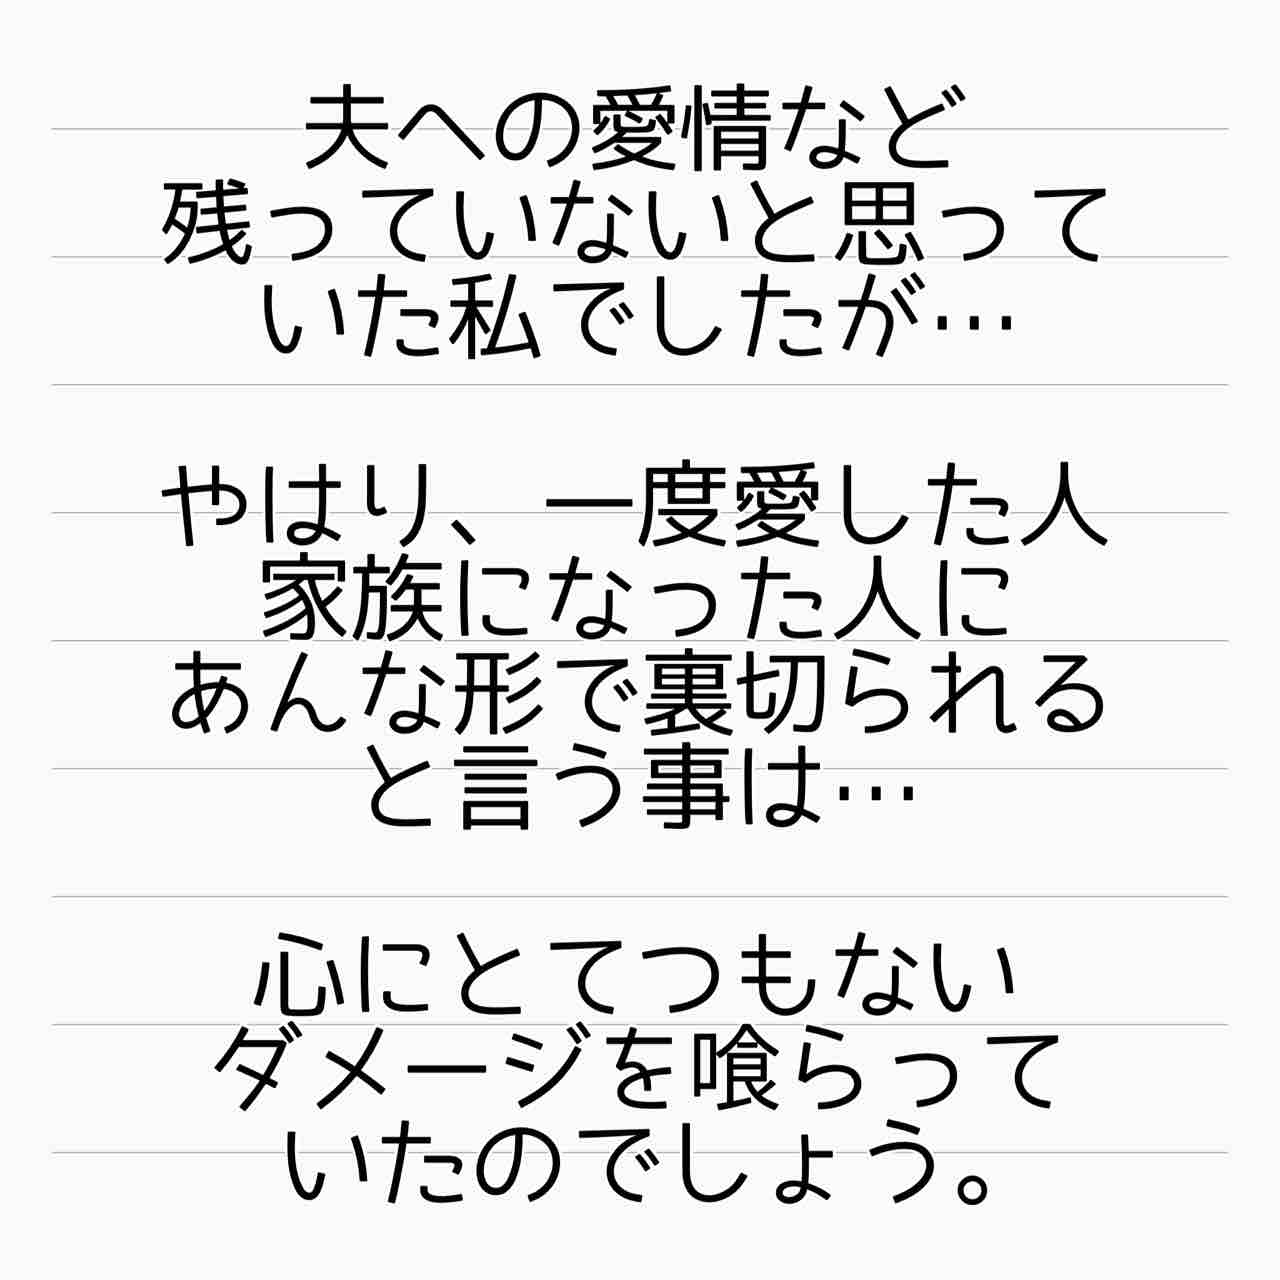 夫への愛情など
残っていないと思って
いた私でしたが…
やはり、一度愛した人
家族になった人に
あんな形で裏切られる
と言う事は…
心にとてつもない
ダメージを喰らって
いたのでしょう。